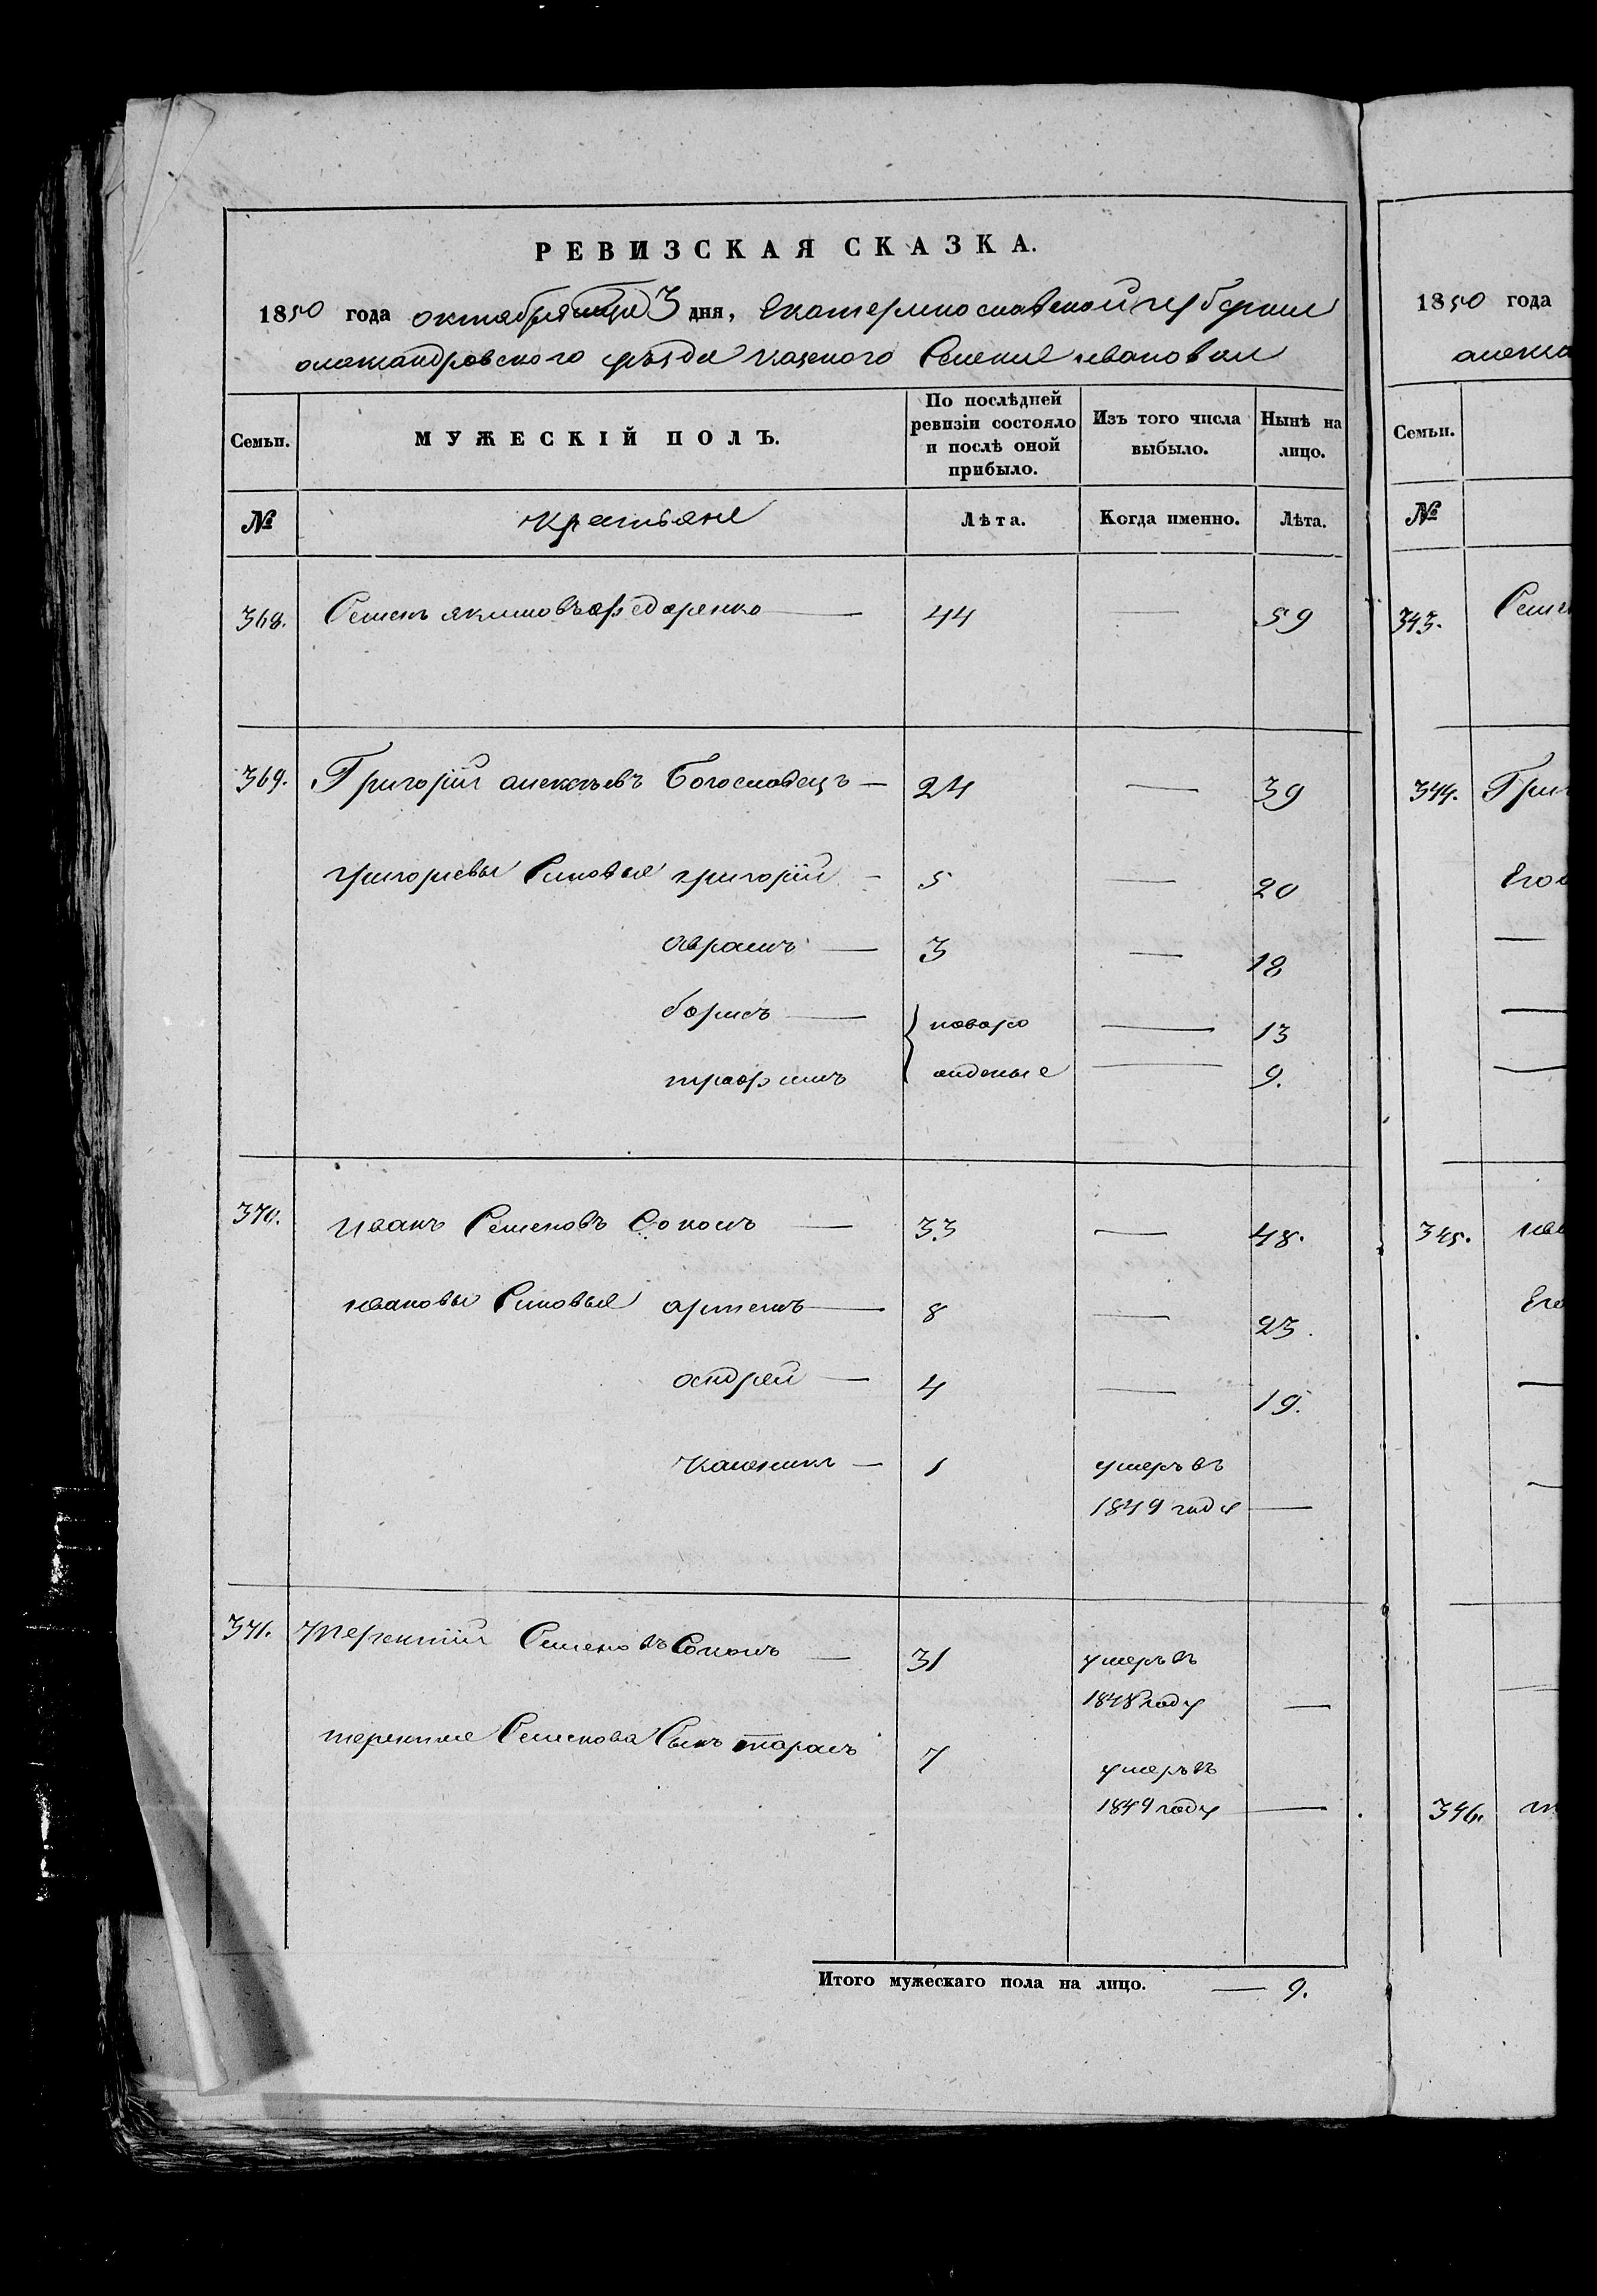 РЕВИЗСКАЯ СКАЗКА.
1850 года октября 3 дня, Екатеринославской губернии
александровского уезда казенного Селения ивановки
Семьи.
МУЖЕСКІЙ ПОЛЪ.
По послѣдней ревизіи состояло и послѣ оной прибыло.
Изъ того числа выбыло.
Нынѣ на лицо.
№
крестьяне
Лѣта.
Когда именно.
Лѣта.
368. Семен якимовъ федоренко — 44 — 59
369. Григорій алексѣевъ Богословецъ — 24 — 39
григориевы Синовья григорій - 5 — 20
аврамъ — 3 — 18
борисъ — новоро — 13
трофимъ жденые — 9.
370. Иванъ Семеновъ Соколъ — 33 — 48.
ивановы Синовья артемъ — 8 — 23.
андрей — 4 — 19.
каленикъ — 1 умеръ въ
1849 году —
371. Терентій Семеновъ Соколъ — 31 умеръ въ
1848 году —
терентия Семенова Сынъ тарасъ 7 умеръ въ
1849 году —
Итого мужескаго пола на лицо. — 9.
1850 года
алекса
Семьи.
№
343. Семе
344. Григ
Его
345. ива
Его
346. т